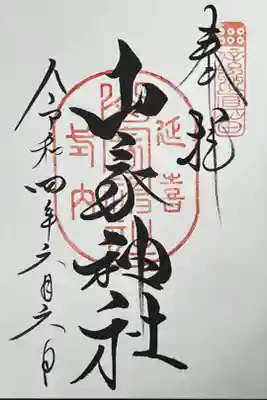 奉拝
延喜
山家神社
式内
令和四年六月六日